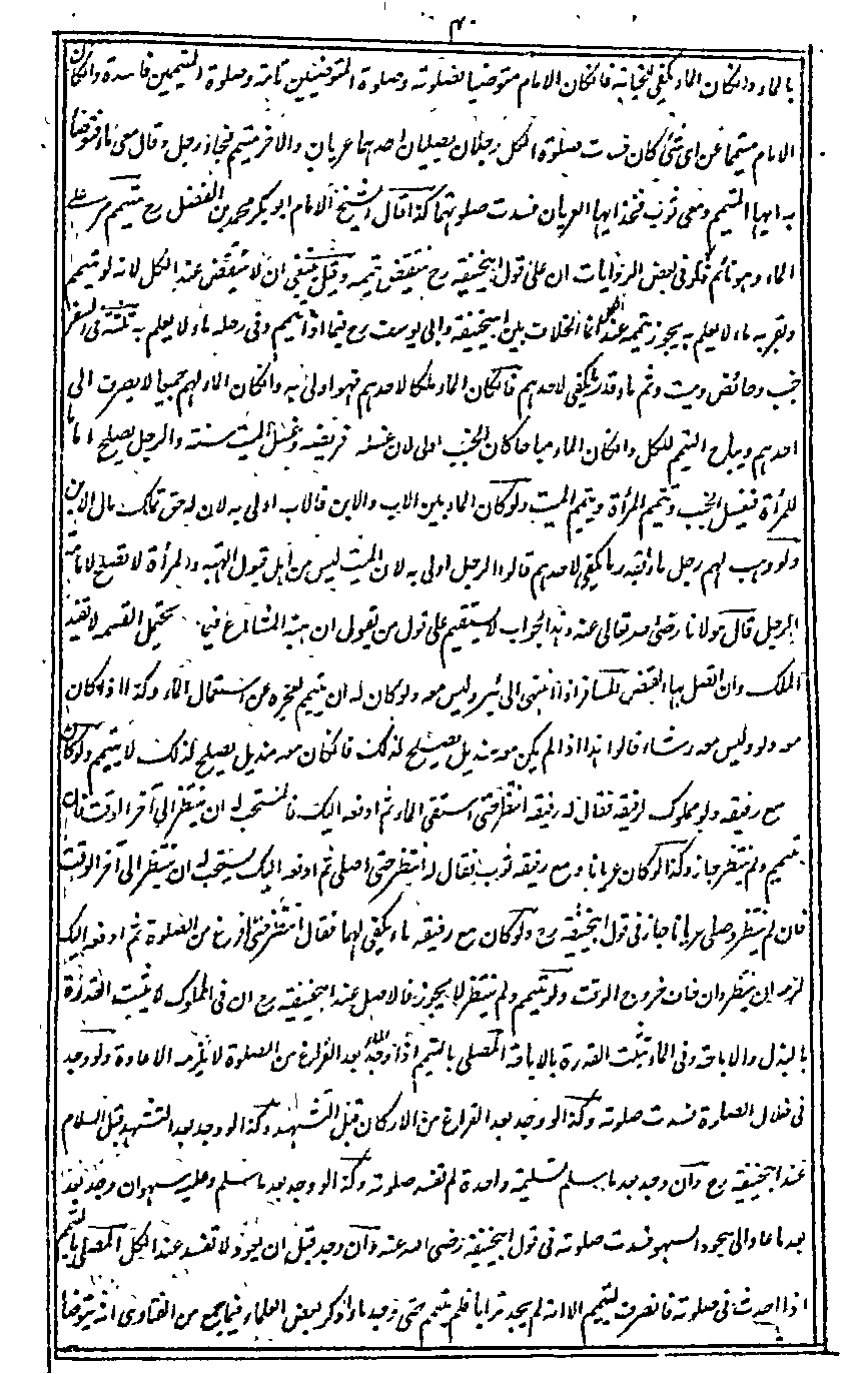 ٣٠
بالماء وان كان الماء يكفي لنجاسة فان كان الامام متوضيا فصلوته وصلوة المتوضيين تامة وصلوة المتيممين فاسدة وان كان
الامام متيمما عن اى شئ كان فسدت صلوة الكل رجلان يصليان احدهما عريان والاخر متيمم فجاء رجل وقال معى ماء فتوضا
به ايها المتيمم ومعى ثوب فخذ ايها العريان فسدت صلوتهما كذا قال الشيخ الامام ابو بكر محمد بن الفضل رح متيمم مر على
الماء وهو نائم ذكر فى بعض الروايات ان على قول ابيحنيفة رح ينتقض تيممه وقيل ينبغى ان لا ينتقض عند الكل لانه لو تيمم
وبقربه ماء لا يعلم به يجوز تيممه عند الكل انما الخلاف بين ابيحنيفة وابى يوسف رح فيما اذا تيمم وفى رحله ماء لا يعلم به ثلثة فى السفر
جنب وحائض وميت وثم ماء قدر ما يكفى لاحدهم فان كان الماء ملكا لاحدهم فهو اولى به وان كان الماء لهم جميعا لا يصرف الى
احدهم ويباح التيمم للكل وان كان الماء مباحا كان الجنب اولى لان غسله فريضة وغسل الميت سنة والرجل يصلح اماما
للمرأة فيغسل الجنب وتتيمم المرأة وييمم الميت ولو كان الماء بين الاب والابن فالاب اولى به لان له حق تملك مال الابن
ولو وهب لهم رجل ماء بقدر ما يكفى لاحدهم قالوا الرجل اولى به لان الميت ليس من اهل قبول الهبة والمرأة لا تصلح لامامة
الرجل قال مولانا رضى الله تعالى عنه وهذا الجواب لا يستقيم على قول من يقول ان هبة المشاع فيما يحتمل القسمة لا تفيد
الملك وان اتصل بها القبض المسافر اذا انتهى الى بئر وليس معه دلو كان له ان يتيمم لعجزه عن استعمال الماء وكذا اذا كان
معه دلو وليس معه رشاء قالوا هذا اذا لم يكن معه منديل يصلح لذلك فان كان معه منديل يصلح لذلك لا يتيمم ولو كان
مع رفيقه دلو مملوك لرفيقه فقال له رفيقه انتظر حتى استقى الماء ثم ادفعه اليك فالمستحب له ان ينتظر الى آخر الوقت فان
تيمم ولم ينتظر جاز وكذا لو كان عريانا ومع رفيقه ثوب فقال له انتظر حتى اصلى ثم ادفعه اليك يستحب له ان ينتظر الى آخر الوقت
فان لم ينتظر وصلى عريانا جاز فى قول ابيحنيفة رح ولو كان مع رفيقه ماء يكفى لهما فقال انتظر حتى افرغ من الصلوة ثم ادفعه اليك
لزمه ان ينتظر وان خاف خروج الوقت ولو تيمم ولم ينتظر لا يجوز فالاصل عند ابيحنيفة رح ان فى المملوك لا يثبت القدرة
بالبذل والاباحة وفى الماء تثبت القدرة بالاباحة المصلى بالتيمم اذا وجد الماء بعد الفراغ من الصلوة لا يلزمه الاعادة ولو وجد
فى خلال الصلوة فسدت صلوته وكذا لو وجد بعد الفراغ من الاركان قبل التشهد وكذا لو وجد بعد التشهد قبل السلام
عند ابيحنيفة رح وان وجد بعد ما سلم تسليمة واحدة لم تفسد صلوته وكذا لو وجد بعد ما سلم وعليه سهو وان وجد بعد
بعد ما عاد الى سجود السهو فسدت صلوته فى قول ابيحنيفة رضى الله عنه وان وجد قبل ان يعود لا تفسد عند الكل المصلى بالتيمم
اذا احدث فى صلوته فانصرف ليتيمم الا انه لم يجد ترابا فلم يتيمم حتى وجد ماء ذكر بعض العلماء فيما جمع من الفتاوى انه يتوضا